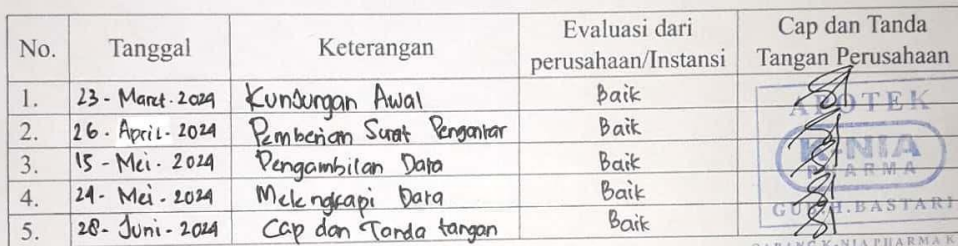 No. Tanggal Keterangan Evaluasi dari perusahaan/Instansi Cap dan Tanda Tangan Perusahaan
1. 23 - Maret - 2024 Kunjungan Awal Baik
2. 26 - April - 2024 Pemberian Surat Pengantar Baik
3. 15 - Mei - 2024 Pengambilan Data Baik
4. 24 - Mei - 2024 Melengkapi Data Baik
5. 28 - Juni - 2024 Cap dan Tanda tangan Baik
APOTEK
K-NIA
PHARMA
H.BASTARI